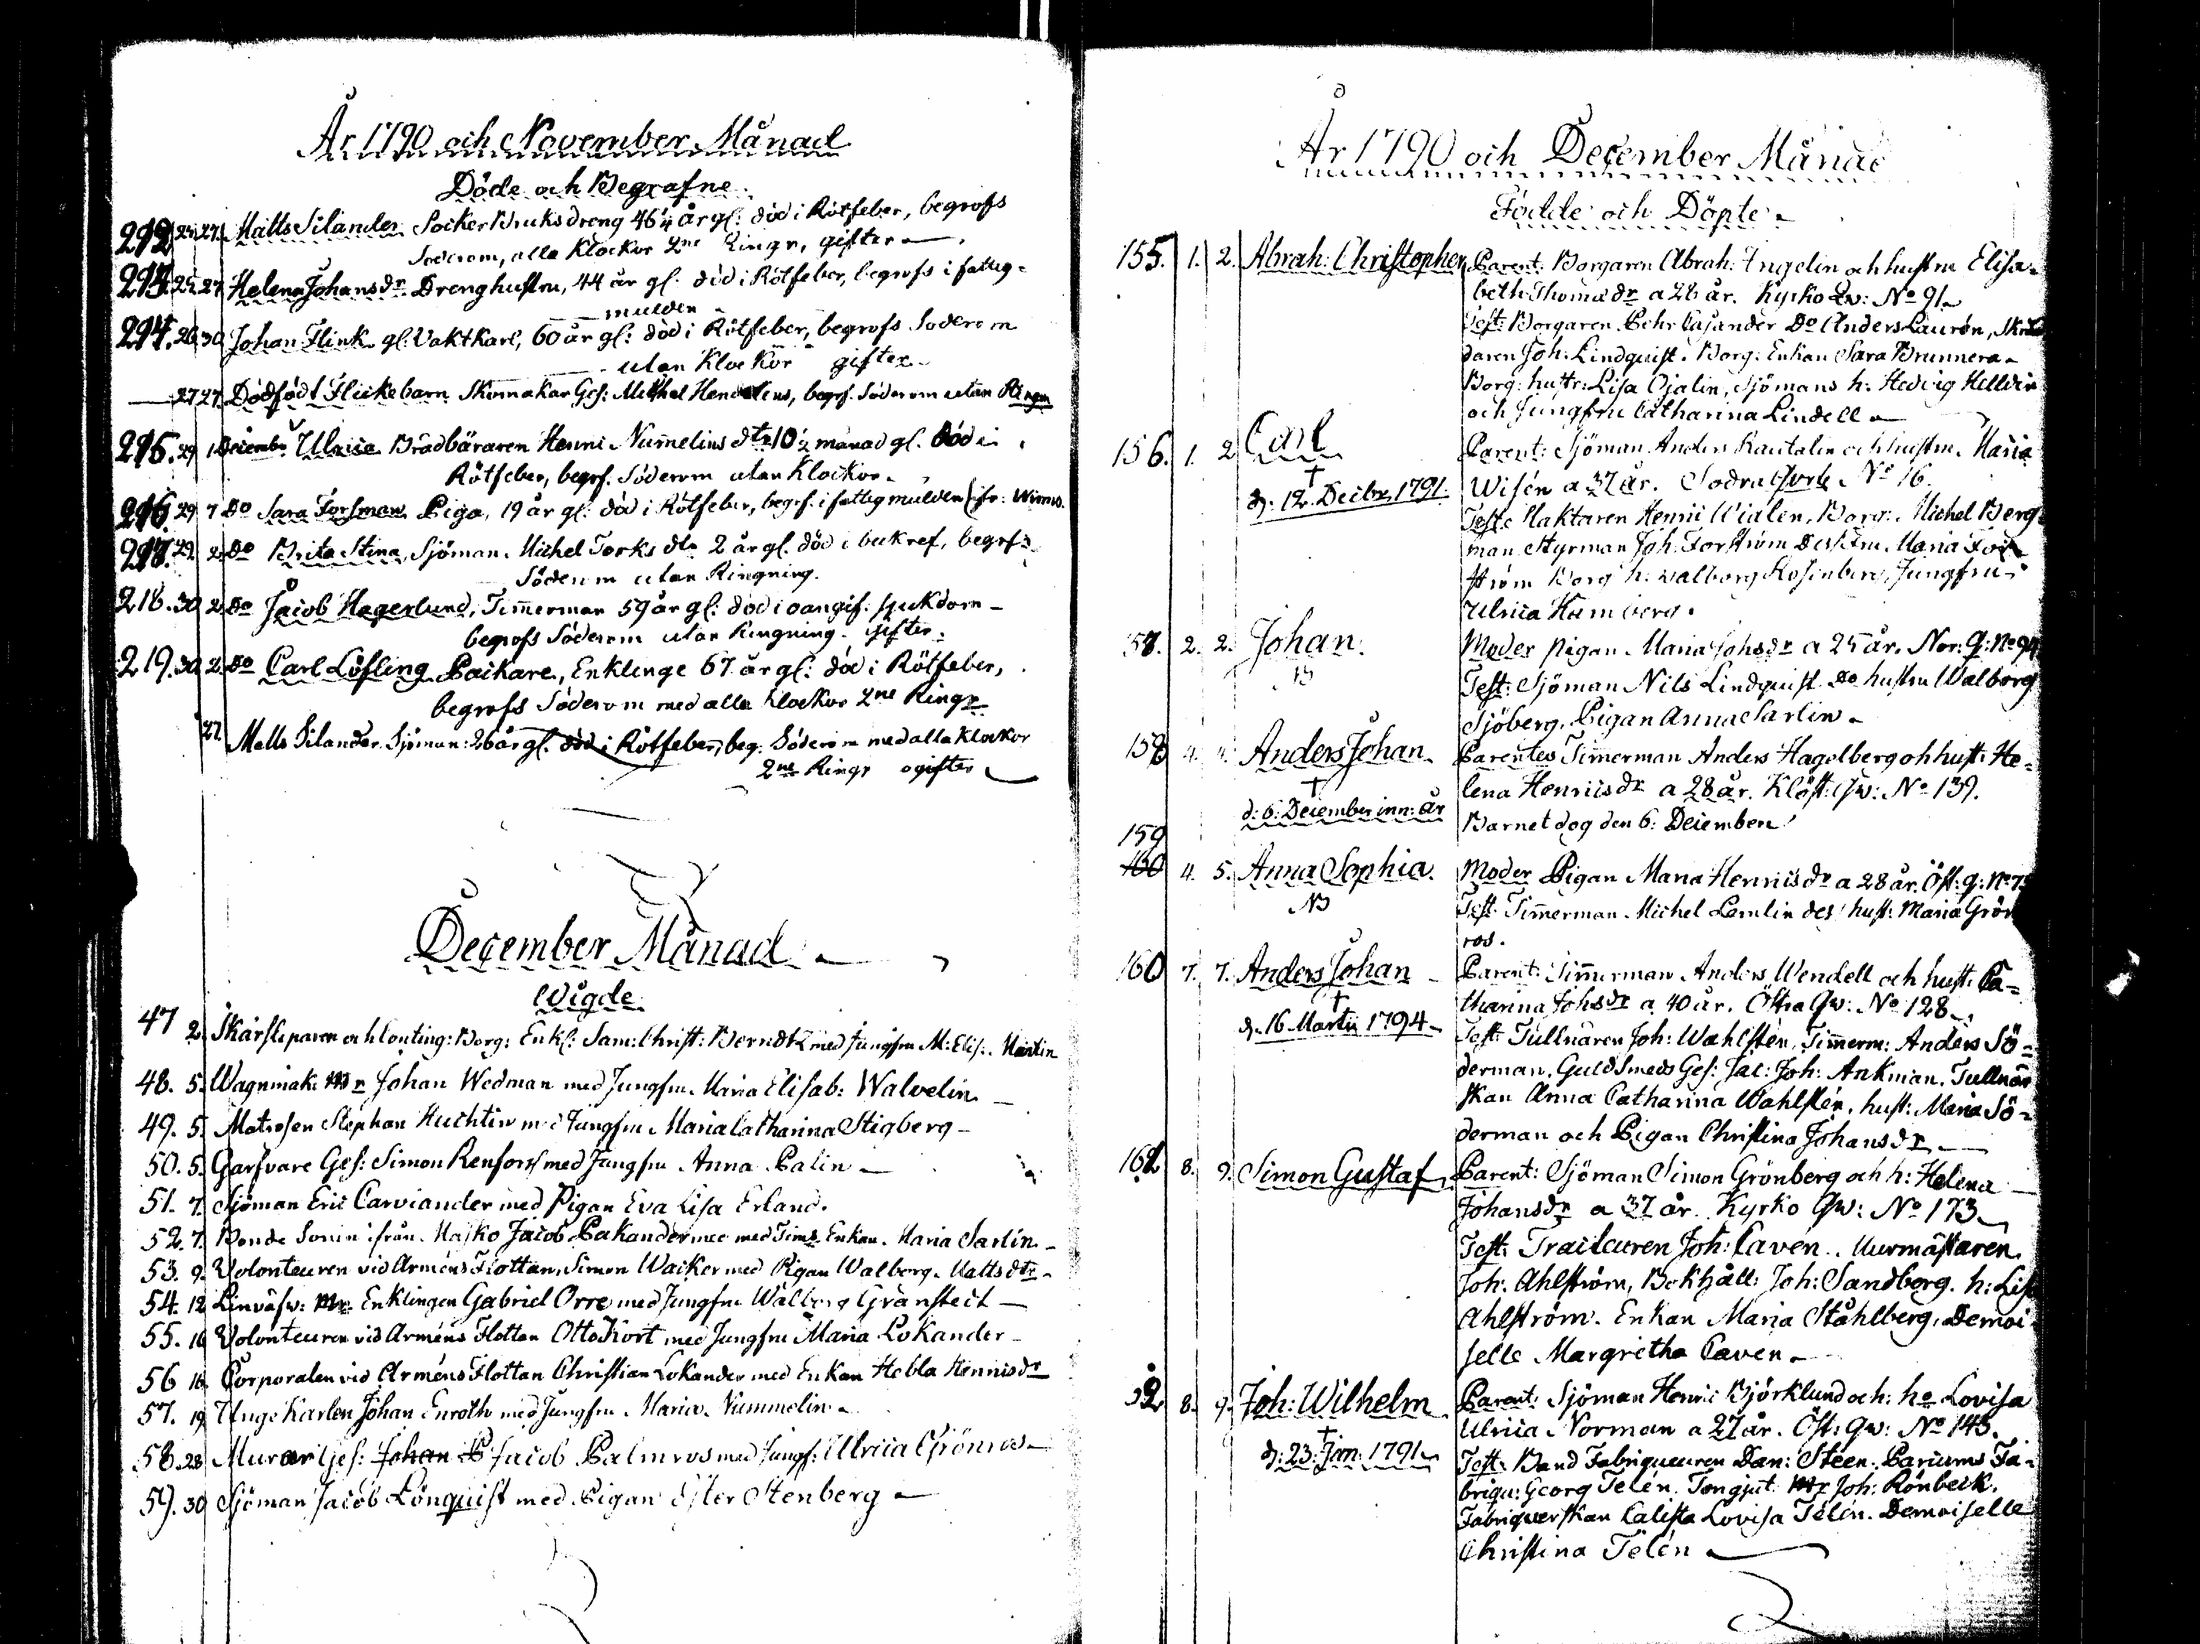 År 1790 och November Månad
Döde och Begrafne.
212 25 27. Matts Silander Socker Bruksdreng 46 1/4 år gl: död i Rötfeber, begrofs
Söderom, alla Klockor 2ne Ringr, gifter
213 25 27 Helena Johansdr Drenghustru, 44 år gl. död i Rötfeber, begrofs i fattig-
mulden
214. 26 30 Johan Flink gl. Vaktkarl, 60 år gl: död i Rötfeber, begrofs Söderom
utan Klockor gifter
27 27 Dödfödt Flickebarn Skomakar Ges: Michel Hendelius, begrf. Söderom utan Ringn
215. 29 1 Decembr Ulrica Brådbäraren Henric Nummelins dtr 10 1/2 månad gl. död i
Rötfeber, begrf. Söderom utan Klockor.
216. 29 7 Do Sara Forsman Piga, 19 år gl: död i Rötfeber, begrf. i fattigmulden (fr: Wirmo.
217. 29. 2 Do Brita Stina, Sjöman Michel Torks dtr 2 år gl. död i bukref, begrfs
Söderom utan Ringning.
218. 30 2 Do Jacob Hagerlund, Timmerman 59 år gl: död i oangif: sjukdom -
begrofs Söderom utan Ringning. gifter.
219. 30 2 Do Carl Löfling Packare, Enklinge 67 år gl: död i Rötfeber,
begrofs Söderom med alla Klockor 2ne Ringr
27. Matts Silander Sjöman: 26 år gl. död i Rötfeber, beg. Söderom med alla Klockor
2ne Ringr ogifter
December Månad
Wigde
47 2. Skärsliparen och Conting: Borg: Enkl: Sam: Christ: Berndtz med Jungfru M: Elis: Martin
48. 5. Wagnmak: Mr Johan Wedman med Jungfru Maria Elisab: Walvelin
49. 5. Matrosen Stephan Huchtin med Jungfru Maria Catharina Stigberg -
50. 5. Garfvare Ges: Simon Renfors med Jungfru Anna Palin
51. 7. Sjöman Eric Carviander med Pigan Eva Lisa Erland.
52. 7. Bonde Sonen ifrån Masko Jacob med Tims Enkan Maria Sarlin
53. 9. Volonteuren vid Arméns Flottan, Simon Wacker med Pigan Walborg Mattsdtr
54. 12 Linväfv: Mr Enklingen Gabriel Orre med Jungfru Walborg Granstedt
55. 16 Volonteuren vid Arméns Flottan Otto Kort med Jungfru Maria Lokander
56 16 Corporalen vid Arméns Flottan Christian Lokander med Enkan Hebla Henricsdr
57. 19 Unge Karlen Johan Enroth med Jungfru Maria Nummelin
58. 28 Murar Ges: Johan P Jacob Palmros med Jungf: Ulrica Grönros
59. 30 Sjöman Jacob Lönquist med Pigan Ester Stenberg
År 1790 och December Månad
Födde och Döpte
155. 1. 2. Abrah: Christopher Parent: Borgaren Abrah: Ingelin och hustru Elisa-
beth Thomædr a 26 år. Kyrko Qv: No 91
Test: Borgaren Pehr Casander Do Anders Laurén, Skräd
daren Joh: Lindquist. Borg: Enkan Sara Brunnera
Borg: hustr: Lisa Ojalin, Sjömans h: Hedvig Hellvin
och Jungfru Catharina Lindell
156. 1. 2 Carl Parent: Sjöman Anders Rautalin och hustru Maria
d: 12. Decbr 1791. Wisén a 37 år. Södra Qvrt No 16.
Test: Slaktaren Henric Widlen, Borg: Michel Berg
man Styrman Joh. Forström Des Fru Maria For
ström Borg h: Walborg Rosenberg, Jungfru
Ulrica Hamberg.
57. 2. 2. Johan. Moder Pigan Maria Johsdr a 25 år. Nor: q: No 94
NB Test: Sjöman Nils Lindquist Do hustru Walborg
Sjöberg. Pigan Anna Sarlin
158 4. 4. Anders Johan Parentes Timmerman Anders Hagelberg och hust: He-
lena Henricsdr a 28 år. Klöst: Qw: No 139.
d: 6: December inn: år Barnet dog den 6: December
159
160 4. 5. Anna Sophia. Moder Pigan Maria Henricsdr a 28 år. Öst: q: No 7
NB Test: Timmerman Michel Lemlin des hust: Maria Grön
ros.
160 7. 7. Anders Johan Parent: Timmerman Anders Wendell och hust: Ca-
tharina Johsdr a 40 år. Östra Qw: No 128
d. 16 Martii 1794 Test: Tullnären Joh: Wahlstén, Timmerm: Anders Sö-
derman. Guldsmeds Ges: Jac: Joh: Ankman. Tullnär
skan Anna Catharina Wahlstén, hust: Maria Sö-
derman och Pigan Christina Johansdr
161 8. 9. Simon Gustaf Parent: Sjöman Simon Grönberg och h: Helena
Johansdr a 37 år. Kyrko Qw: No 173
Test: Traiteuren Joh: Cavén. Murmästaren
Joh: Ahlström, Bokhåll: Joh: Sandberg. h: Lisa
Ahlström. Enkan Maria Ståhlberg, Demoi
selle Margretha Caven
8. 9. Joh: Wilhelm Parent: Sjöman Henric Björklund och: ho Lovisa
Ulrica Norman a 27 år. Öst: Qw: No 143.
d: 23: Jan: 1791 Test: Band Fabriqueuren Dan: Steen. Fa-
briqu: Georg Telén. Tenngjut. Mr Joh: Rönbeck.
Fabriquerskan Calista Lovisa Telén. Demoiselle
Christina Telén